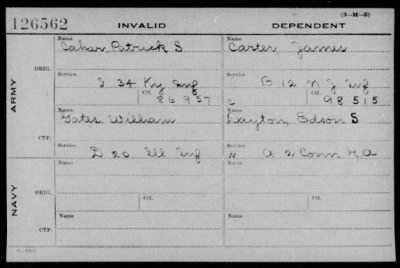 (3-H-3)
126562 INVALID DEPENDENT
Name Name
Cahar Patrick S Carter James
ORIG.
Service Service
I 34 Ky Inf B 12 N J Inf
Ctf. Ctf.
86957 98515
ARMY
Name Name
Gates William Layton, Edson S
CTF.
Service Service
D 20 Ill Inf " A 2 Conn H A
NAVY
Name Name
ORIG.
Service Ctf. Service Ctf.
Name Name
CTF.